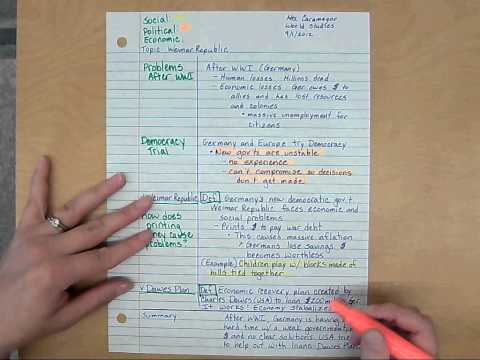 Social:
Political:
Economic:
Topic: Weimar Republic
World Studies
9/1/2012
Problems
After WWI
After WWI (Germany)
- Human losses: Millions dead
- Economic losses: Ger owes $ to
allies and has lost resources
and colonies
• massive unemployment for
citizens
Democracy
Trial
Germany and Europe try Democracy
• New gov'ts are unstable
- no experience
- can't compromise so decisions
don't get made
Weimar Republic
Def: Germany's new democratic gov't
Weimar Republic faces economic and
social problems
- Prints $ to pay war debt
• This causes massive inflation
> Germans lose savings, $
becomes worthless
How does
printing
new cause
problems?
(Example) Children play w/ blocks made of
bills tied together
Dawes Plan
Def: Economic recovery plan created by
Charles Dawes (USA) to loan $200 mil
It works! Economy stabilizes
Summary
After WWI, Germany is having a
hard time w/ a weak government
$ and no clear solutions. USA
to help out with loans Dawes Plan